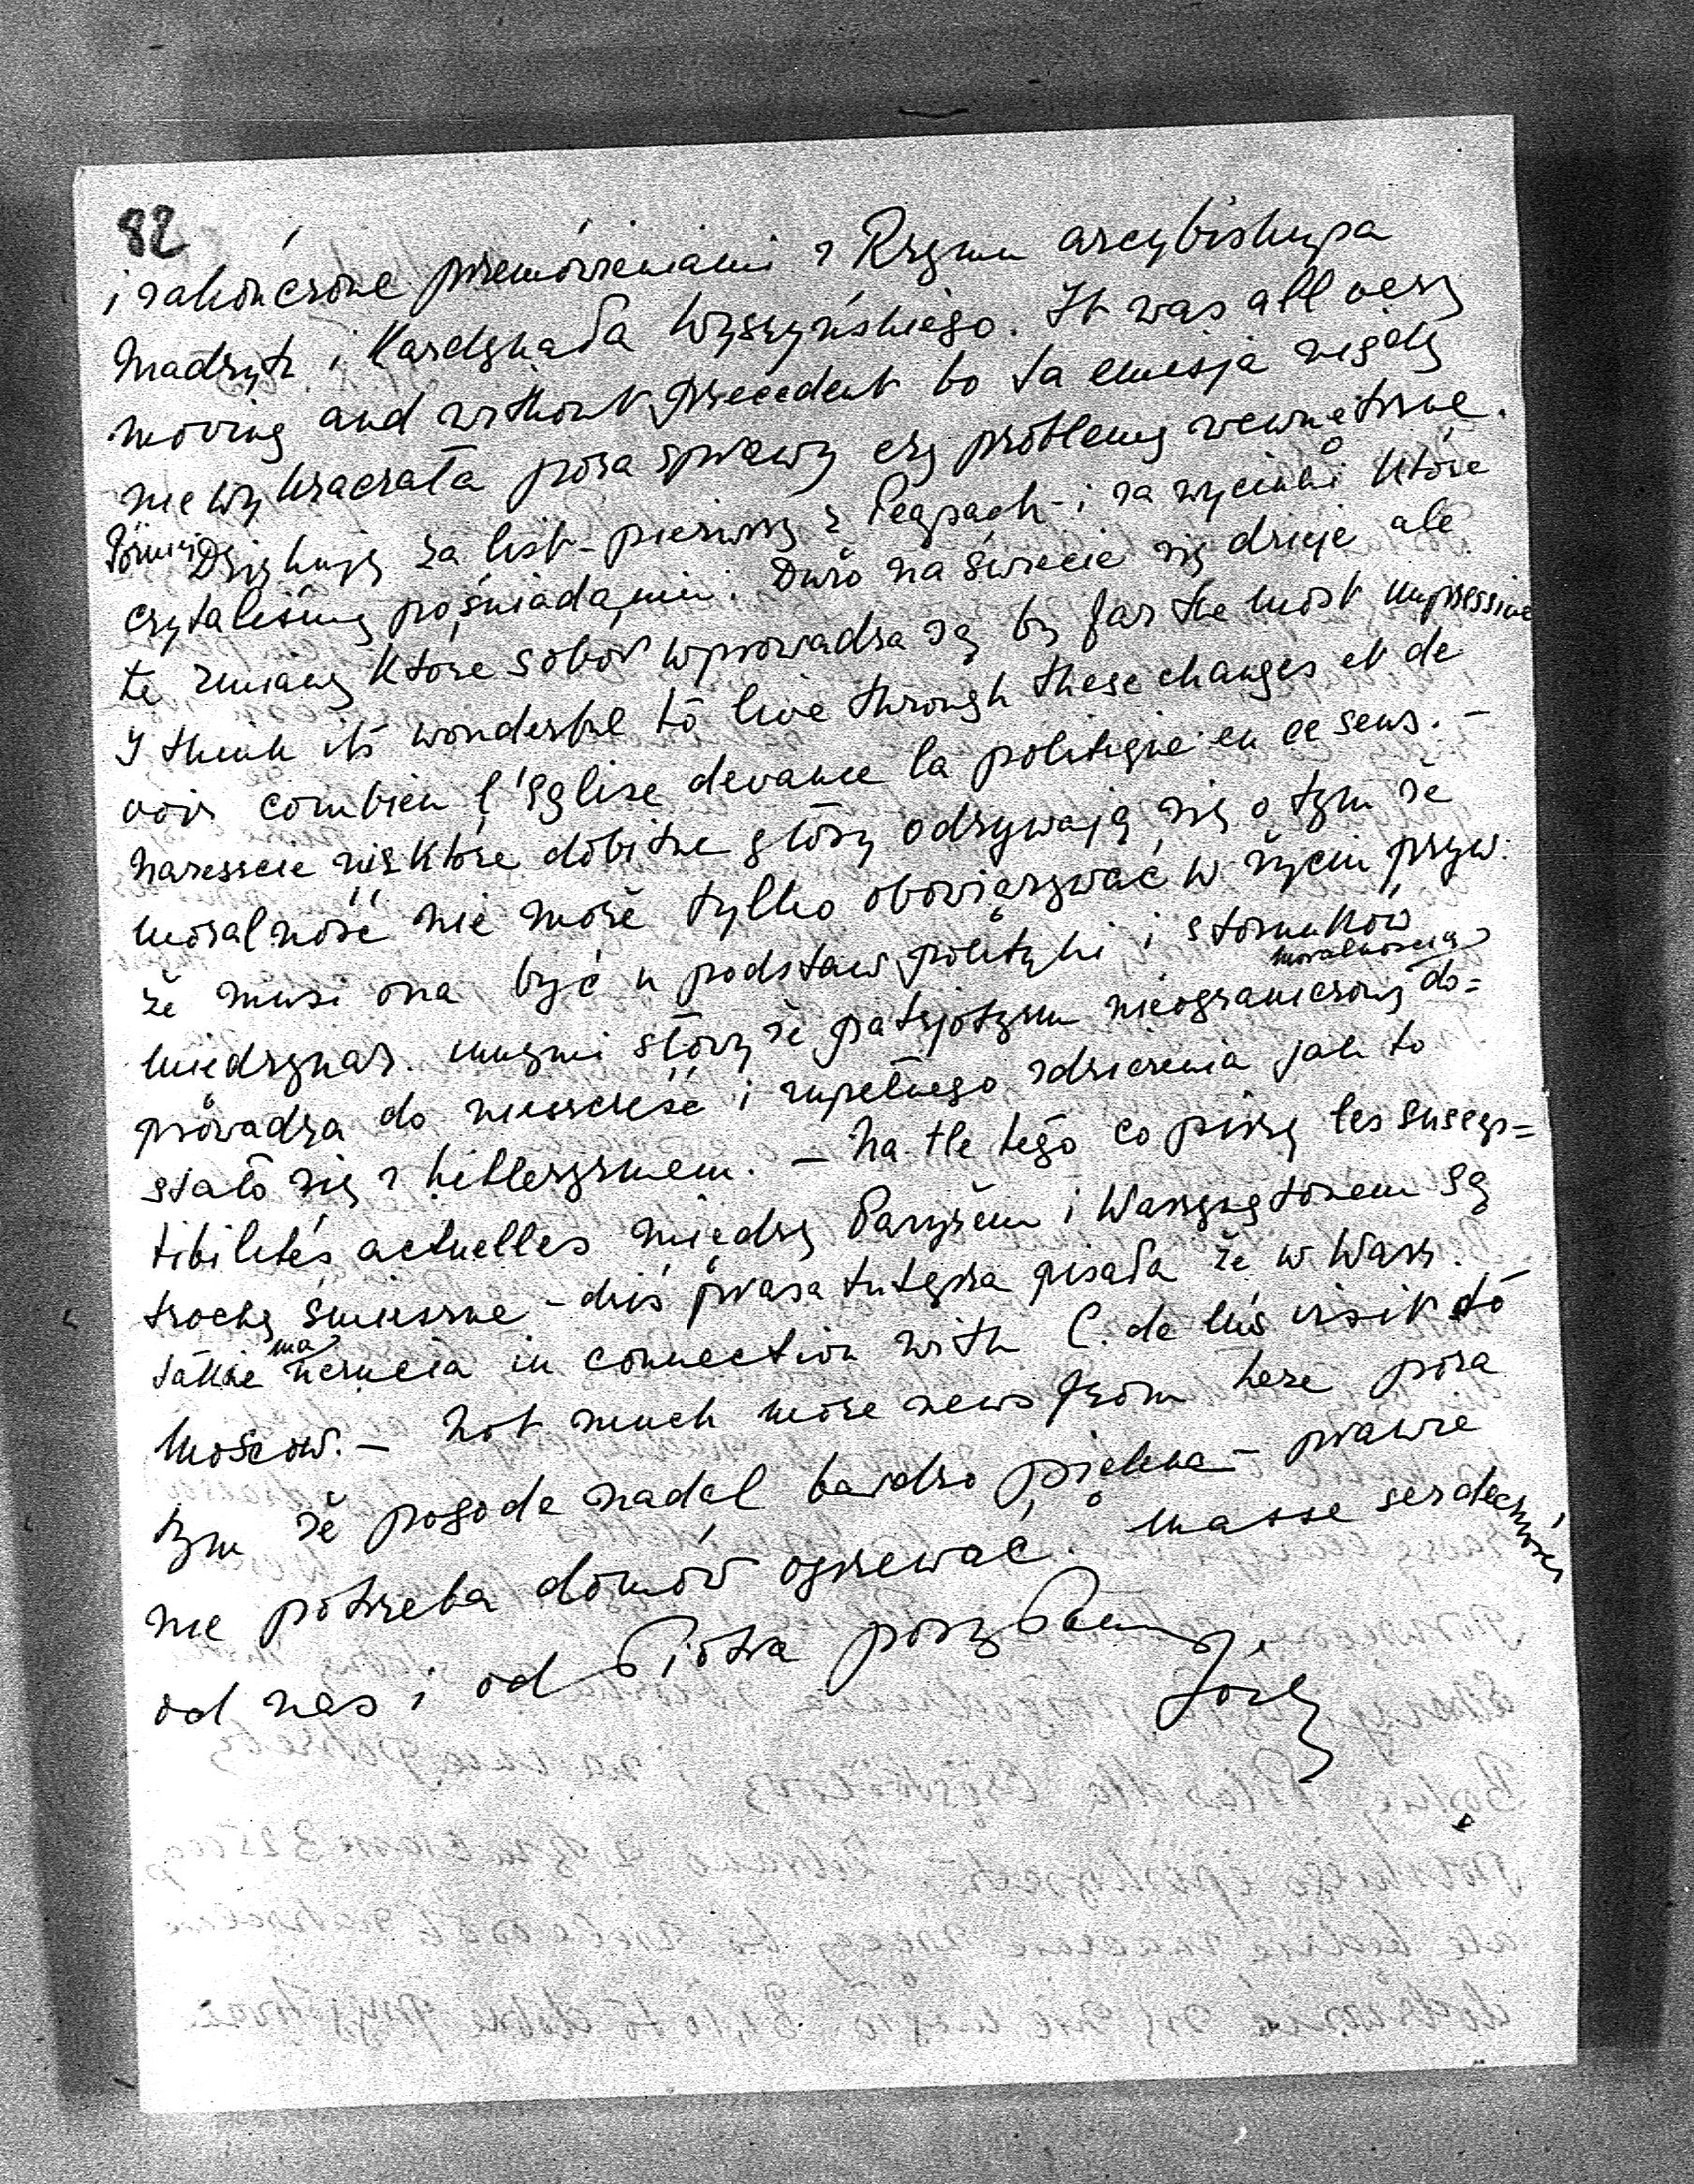 82
i zakończone przemówieniami z Rzymu arcybiskupa
Madrytu i Kardynała Wyszyńskiego. It was all very
moving and without precedent bo ta emisja nigdy
nie wykraczała poza sprawy czy problemy wewnętrzne.
Dziękuję za list - pierwszy z Pegpach - i za wycinki które
czytaliśmy po śniadaniu. Dużo na świecie się dzieje ale
te zmiany które sobór wprowadza są by far the most impressive
I think its wonderful to live through these changes et de
voir combien l'Eglise devance la politique en ce sens. -
Nareszcie niektóre dobitne głosy odzywają się o tym że
moralność nie może tylko obowiązywać w życiu pryw.
że musi ona być u podstaw polityki i stosunków
międzynar. innymi słowy że patrjotyzm nieograniczony moralnością do=
prowadza do nieszczęść i zupełnego zdziczenia jak to
stało się z hitleryzmem. - Na tle tego co piszę les suscep=
tibilités actuelles między Paryżem i Waszyngtonem są
trochę śmieszne - dziś prasa tutejsza pisała że w Wasz.
takie ma uczucia in connection with C. de M's visit to
Moscow. - Not much more news from here poza
tym że pogoda nadal bardzo piękna - prawie
nie potrzeba domów ogrzewać. Masse serdeczności
od nas i od Piotra posyłam
Józ